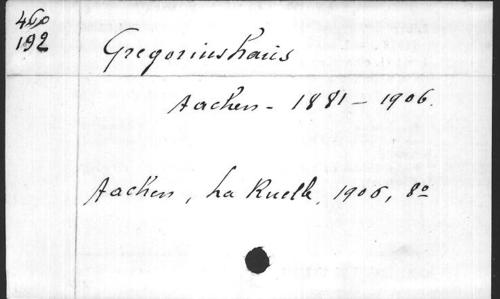 460
192
Gregoriushaus
Aachen - 1881 - 1906.
Aachen, La Ruelle, 1906, 8º